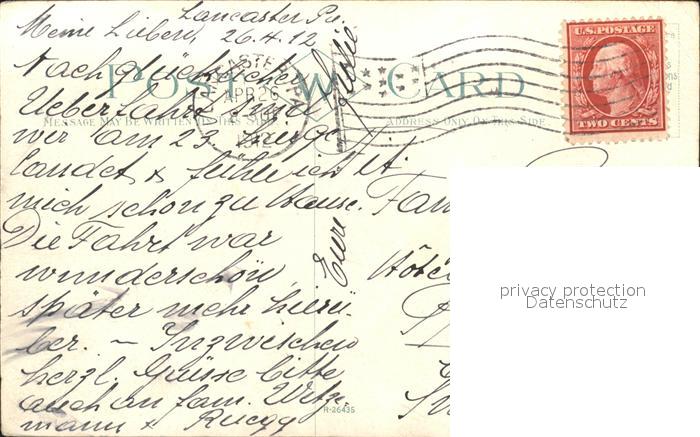 Lancaster Pa.
Meine Lieben, 26.4.12
Nach glücklicher
Ueberfahrt sind
wir am 23. hier ge
landet & fühle ich
mich schon zu Hause.
Die Fahrt war
wunderschön,
später mehr hierü-
ber. – Inzwischen
herzl. Grüsse bitte
auch an fam. Wetze-
mann & Ruegg
Eure
POST CARD
MESSAGE MAY BE WRITTEN ON THIS SIDE
ADDRESS ONLY ON THIS SIDE
APR 26
PA
U.S. POSTAGE
TWO CENTS
Fam
Hôtel
R-26435
privacy protection
Datenschutz